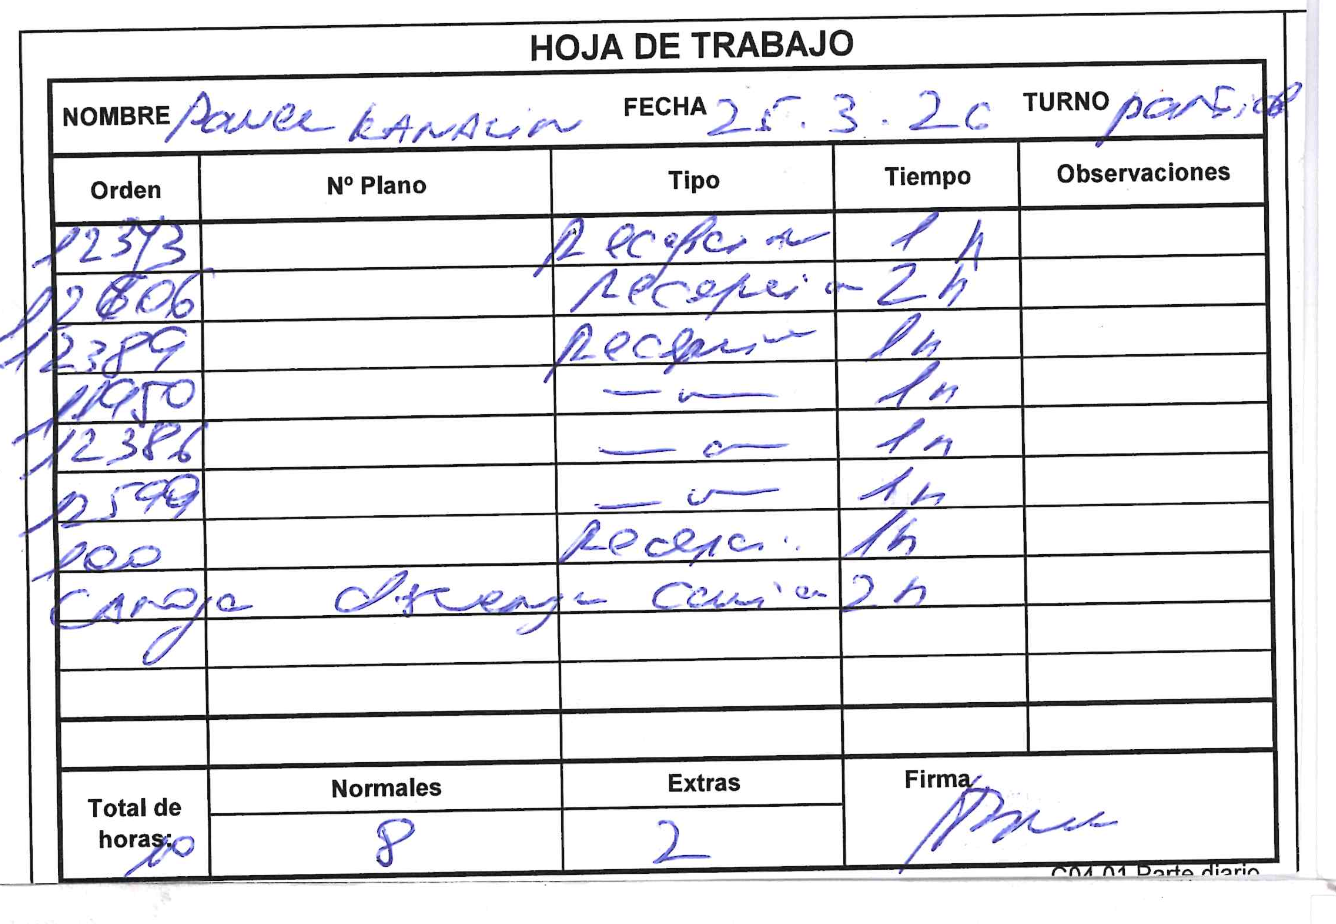 HOJA DE TRABAJO
NOMBRE Pavel KANALIN FECHA 25.3.26 TURNO partido
Orden Nº Plano Tipo Tiempo Observaciones
12373 Recepcion 1h
12606 Recepcion 2h
12389 Recepcion 1h
11950 — " — 1h
12386 — " — 1h
12599 — " — 1h
100 Recepci. 1h
CARGA descarga camion 2h
Normales Extras Firma
Total de horas: 10 8 2
C04.01 Parte diario